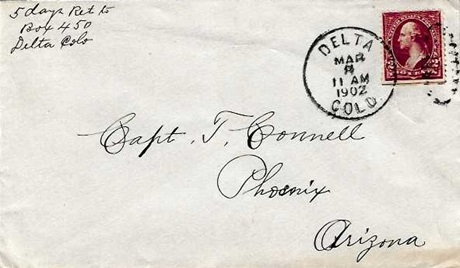 5 days Ret to
Box 450
Delta Colo
DELTA
MAR
8
11 AM
1902
COLO.
Capt. T. Connell
Phoenix
Arizona